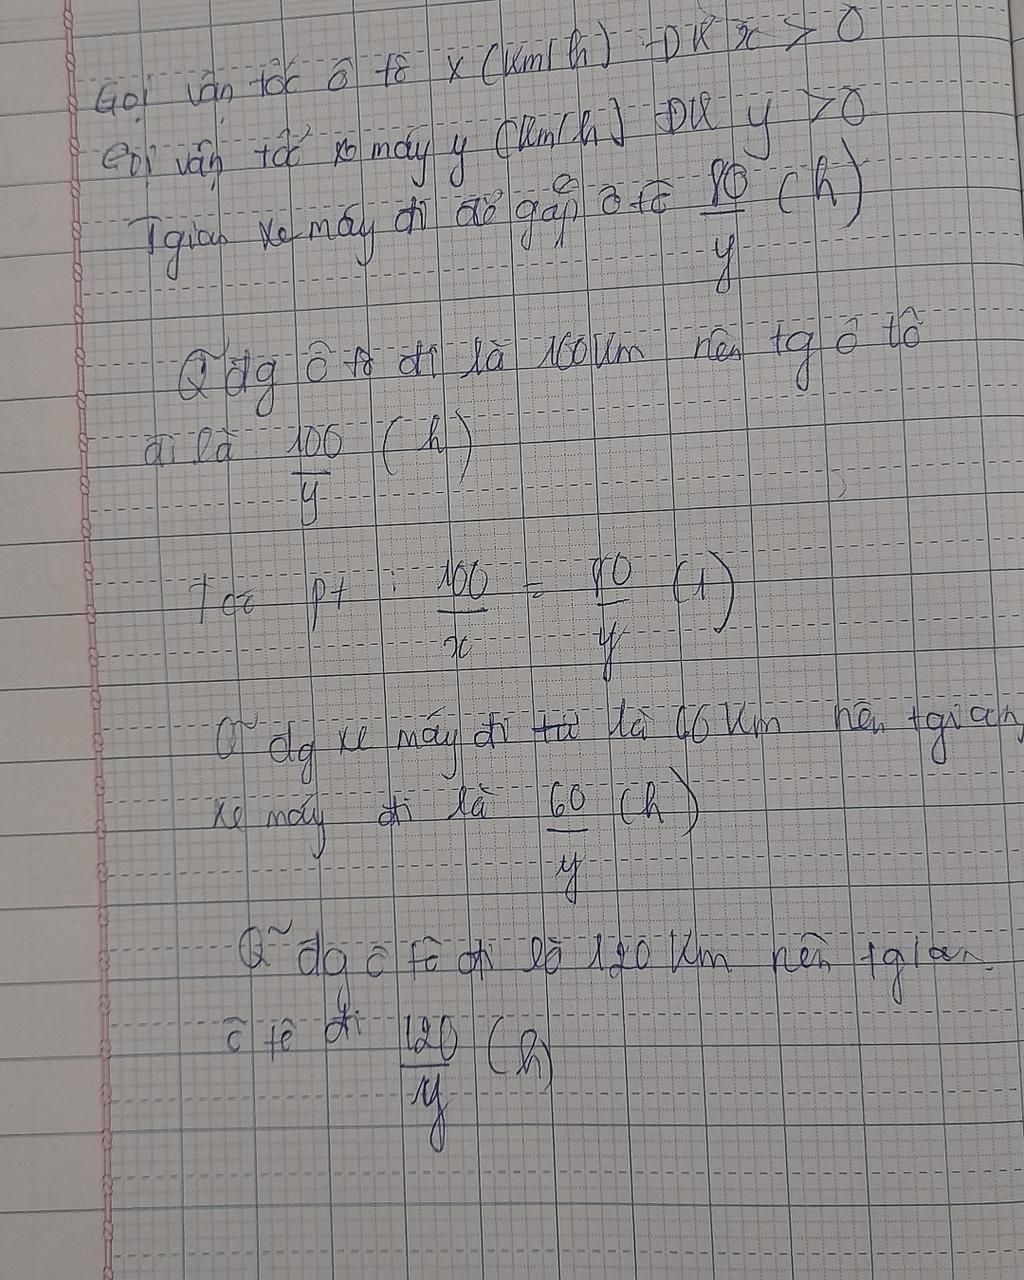 Gọi vận tốc ô tô x (km/h) ĐK x > 0
Gọi vận tốc xe máy y (km/h) ĐK y > 0
Tgian xe máy đi để gặp ô tô 80/y (h)
Q~ đg ô tô đi là 100 km nên tg ô tô
đi là 100/y (h)
Tcó pt : 100/x = 80/y (1)
Q~ đg xe máy đi là 60 km nên tgian
xe máy đi là 60/y (h)
Q~ đg ô tô đi là 120 km nên tgian
ô tô đi 120/y (h)